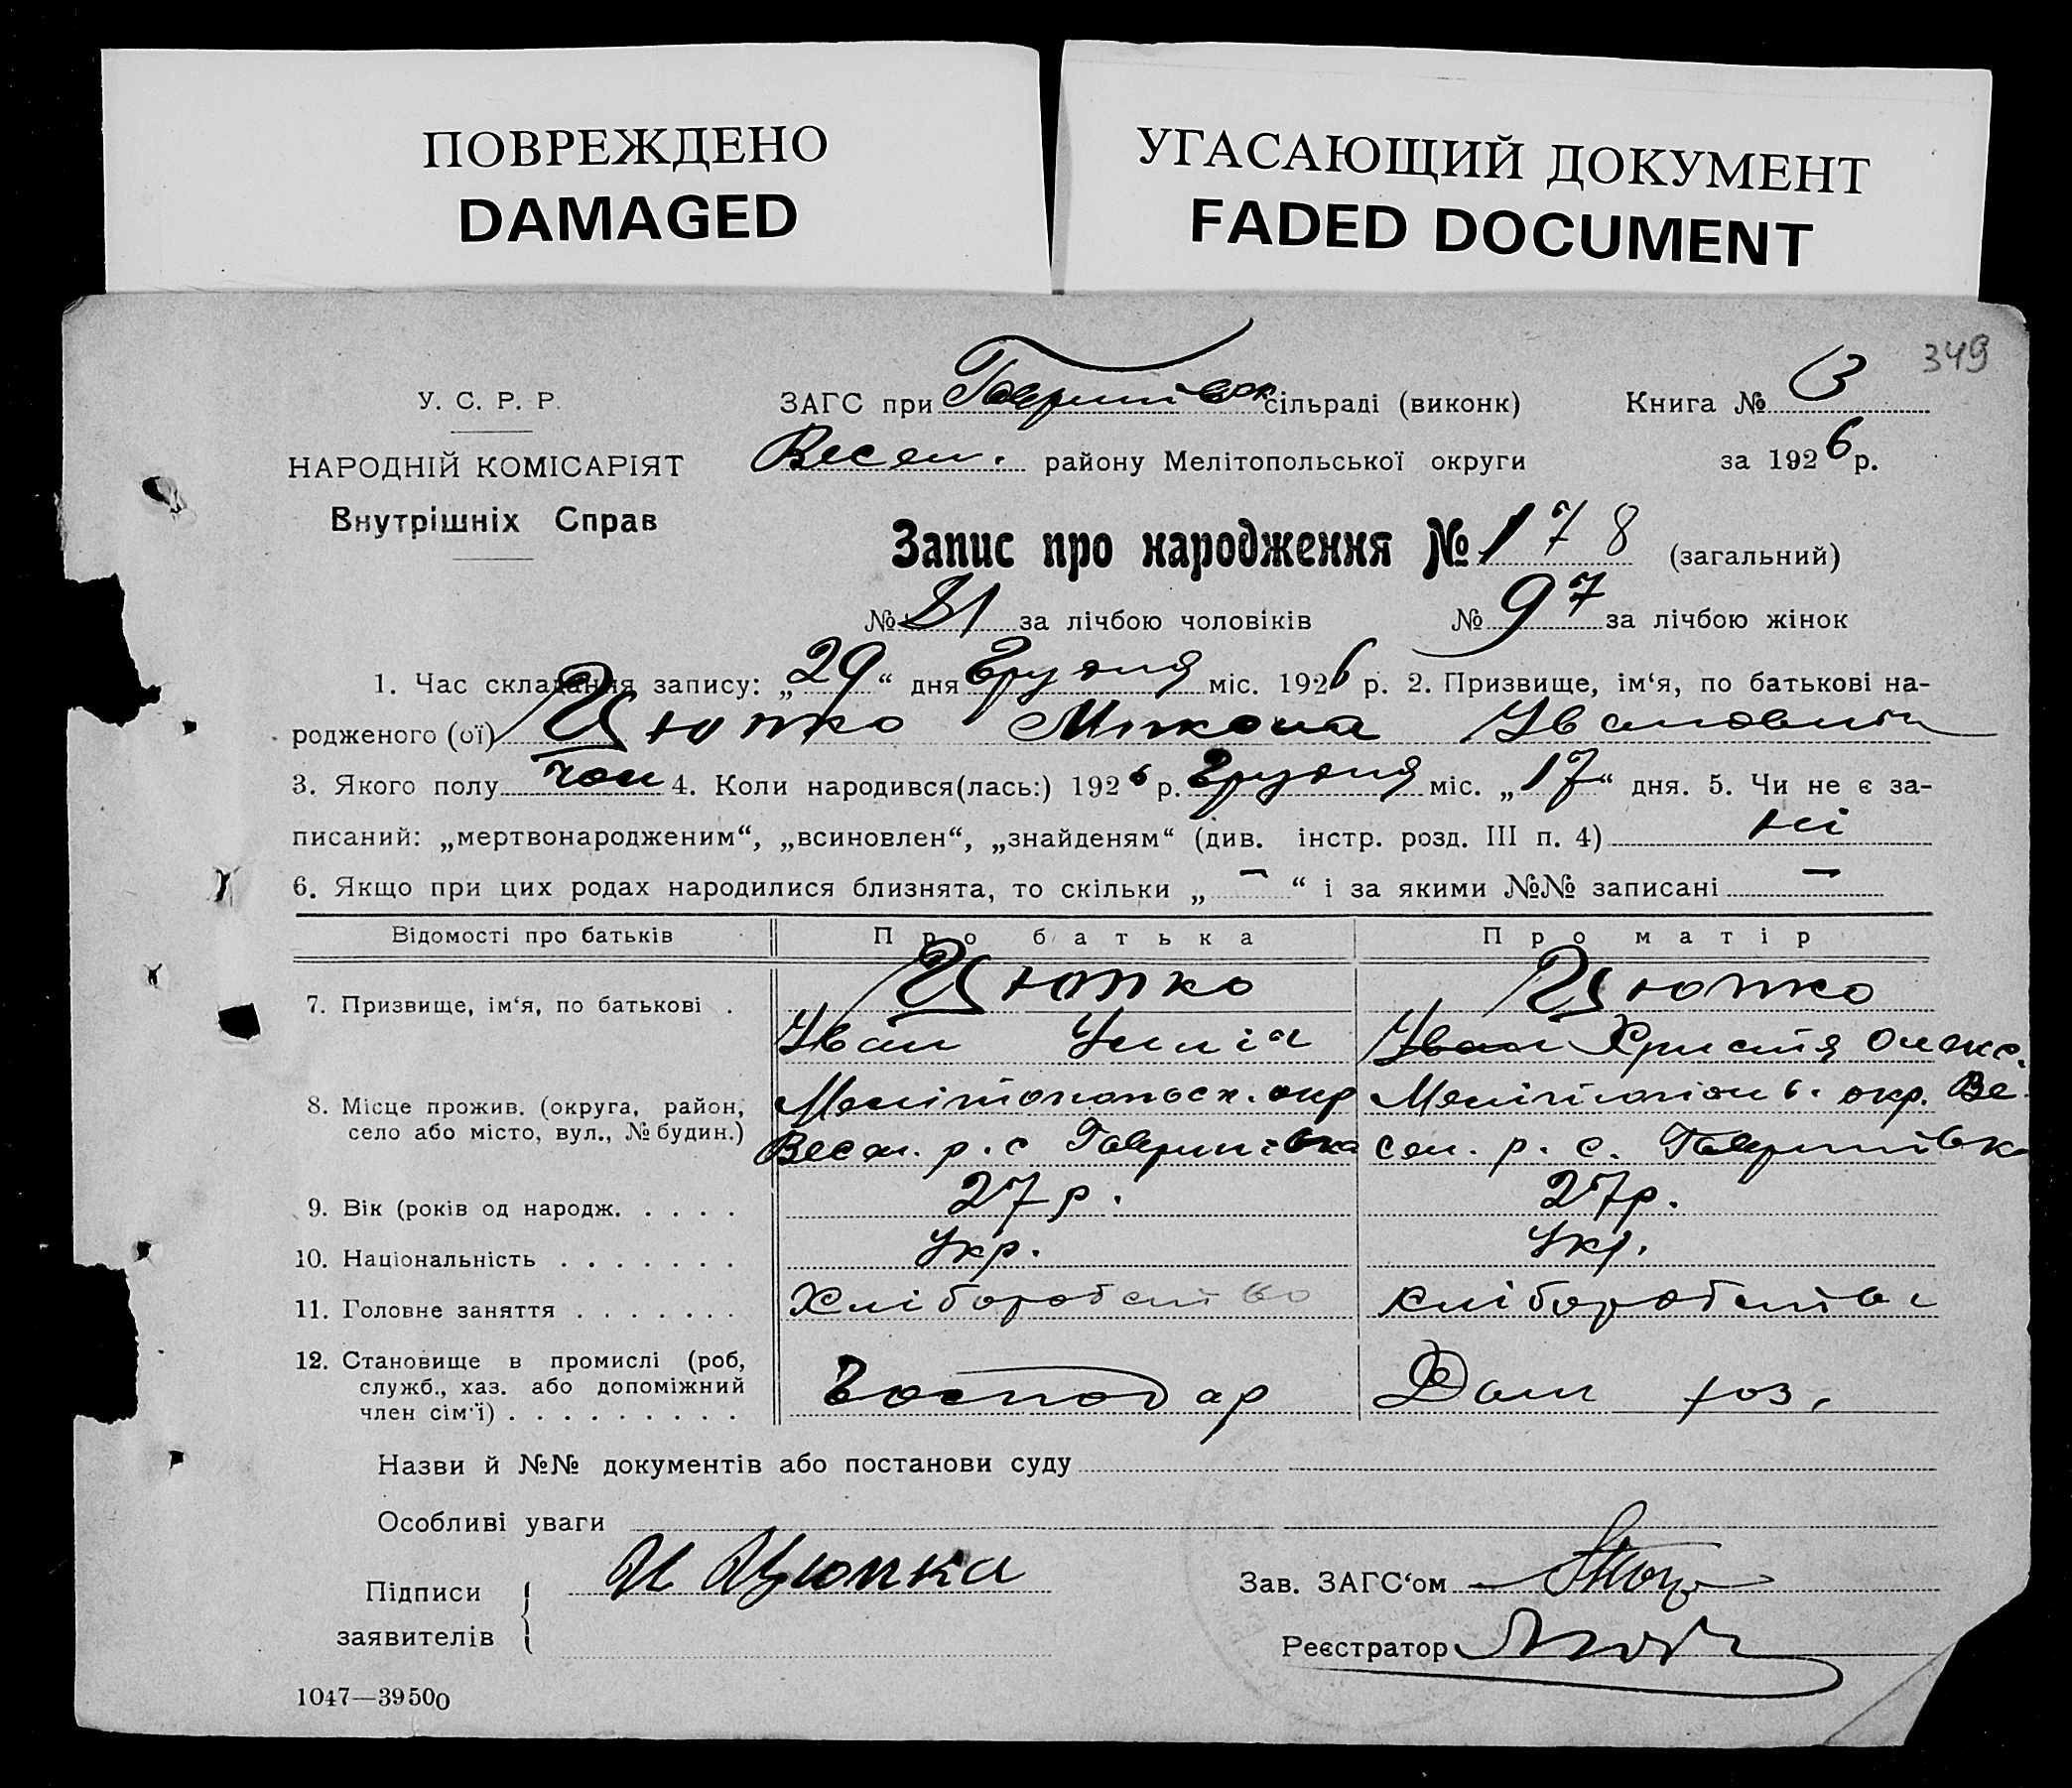 ПОВРЕЖДЕНО
DAMAGED
УГАСАЮЩИЙ ДОКУМЕНТ
FADED DOCUMENT
349
У. С. Р. Р.
НАРОДНІЙ КОМІСАРІЯТ
Внутрішніх Справ
ЗАГС при Гавришівск сільраді (виконк)
Книга №
Весел. району Мелітопольської округи
за 1926 р.
Запис про народження № 178 (загальний)
№ 81 за лічбою чоловіків № 97 за лічбою жінок
1. Час складання запису: „29“ дня Грудня міс. 1926 р. 2. Призвище, ім‘я, по батькові на-
родженого (ої) Цюпко Микола Іванович
3. Якого полу чол 4. Коли народився(лась:) 1926 р. Грудня міс. „17“ дня. 5. Чи не є за-
писаний: „мертвонародженим“, „всиновлен“, „знайденям“ (див. інстр. розд. III п. 4) ні
6. Якщо при цих родах народилися близнята, то скільки „ — “ і за якими №№ записані —
Відомості про батьків Про батька Про матір
7. Призвище, ім‘я, по батькові . Цюпко Цюпко
Іван Іван Христя Олекс.
8. Місце прожив. (округа, район, Мелітопольск. окр Мелітопол. окр. Ве
село або місто, вул., № будин.) Весел. р. с Гавришівка сел. р. с. Гавришівка
9. Вік (років од народж. . . . . 27 р. 27 р.
10. Національність . . . . . . . Укр. Укр.
11. Головне заняття . . . . . . . Хліборобство Хліборобство
12. Становище в промислі (роб,
служб., хаз. або допоміжний
член сім‘ї) . . . . . . . . . Господар Дом хоз.
Назви й №№ документів або постанови суду
Особливі уваги
Підписи
заявителів
И Цюпка
Зав. ЗАГС‘ом
Реєстратор
1047—39500